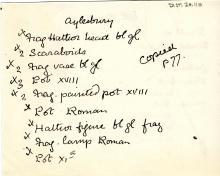 DIST. 24.11
Aylesbury
x frag Hathor head bl gl
x 2 Scaraboids
x 2 frag vase bl gl
x 3 Pot XVIII
x 2 frag. painted pot XVIII
x Pot Roman
x Hathor figure bl gl frag
x frag. Lamp Roman
x Pot XI
Copied
P77.